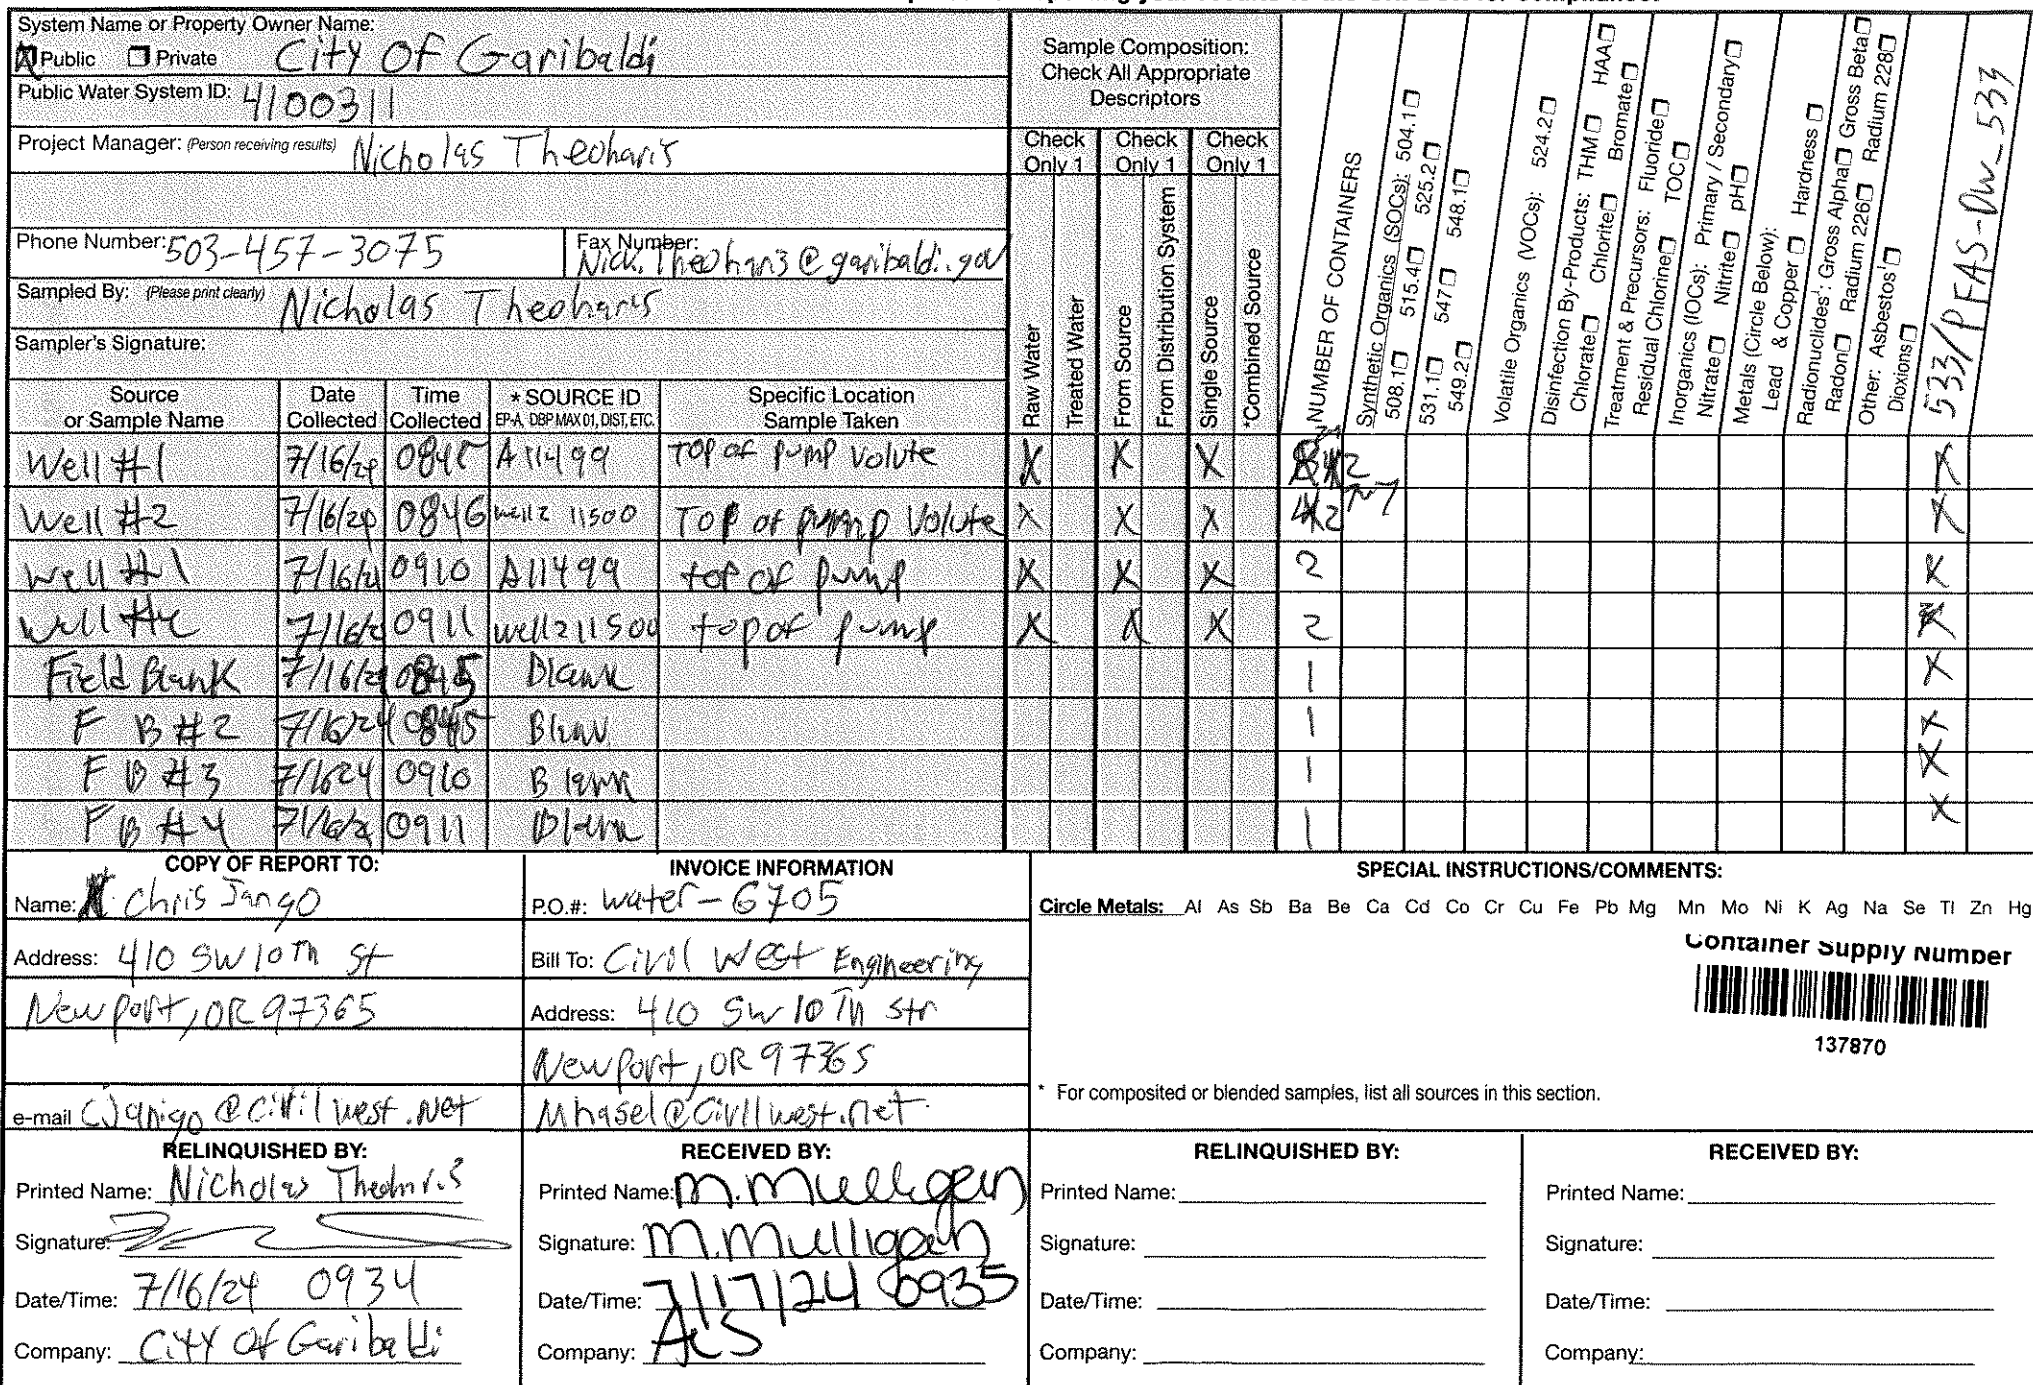 System Name or Property Owner Name:
Public Private City Of Garibaldi
Public Water System ID: 4100311
Project Manager: (Person receiving results) Nicholas Theoharis
Phone Number: 503-457-3075 Fax Number: Nick.Theoharis@garibaldi.gov
Sampled By: (Please print clearly) Nicholas Theoharis
Sampler's Signature:
Sample Composition:
Check All Appropriate
Descriptors
Check Only 1 Check Only 1 Check Only 1
Raw Water
Treated Water
From Source
From Distribution System
Single Source
*Combined Source
NUMBER OF CONTAINERS
Synthetic Organics (SOCs): 504.1
508.1 515.4 525.2
531.1 547 548.1
549.2
Volatile Organics (VOCs): 524.2
Disinfection By-Products: THM HAA
Chlorate Chlorite Bromate
Treatment & Precursors: Fluoride
Residual Chlorine TOC
Inorganics (IOCs): Primary / Secondary
Nitrate Nitrite pH
Metals (Circle Below):
Lead & Copper Hardness
Radionucides¹: Gross Alpha Gross Beta
Radon Radium 226 Radium 228
Other: Asbestos¹
Dioxins
533/PFAS-DW_533
Source or Sample Name Date Collected Time Collected * SOURCE ID EP-A, DBP MAX 01, DIST, ETC. Specific Location Sample Taken
Well #1 7/16/24 0845 A11499 TOP of pump Volute X X X 2 X
Well #2 7/16/24 0846 well2 11500 Top of pump Volute X X X 2 X
Well #1 7/16/24 0910 A11499 top of pump X X X 2 X
Well 7/16/2 0911 well2 11500 top of pump X X X 2 X
Field Blank 7/16/2 0845 Blank 1 X
F B #2 7/16/24 0845 1 X
F B #3 7/1624 0910 Blank 1 X
F B #4 7/16/2 0911 Blank 1 X
COPY OF REPORT TO:
Name: Chris Jango
Address: 410 SW 10Th St
Newport, OR 97365
e-mail Cjanigo@civilwest.net
INVOICE INFORMATION
P.O.#: Water-6705
Bill To: Civil West Engineering
Address: 410 SW 10Th Str
Newport, OR 97365
Mhasel@Civilwest.net
SPECIAL INSTRUCTIONS/COMMENTS:
Circle Metals: Al As Sb Ba Be Ca Cd Co Cr Cu Fe Pb Mg Mn Mo Ni K Ag Na Se Tl Zn Hg
Container Supply Number
137870
* For composited or blended samples, list all sources in this section.
RELINQUISHED BY:
Printed Name: Nicholas Theoharis
Signature:
Date/Time: 7/16/24 0934
Company: City Of Garibaldi
RECEIVED BY:
Printed Name: M. Mulligan
Signature: M. Mulligan
Date/Time: 7/17/24 0935
Company: ALS
RELINQUISHED BY:
Printed Name:
Signature:
Date/Time:
Company:
RECEIVED BY:
Printed Name:
Signature:
Date/Time:
Company: